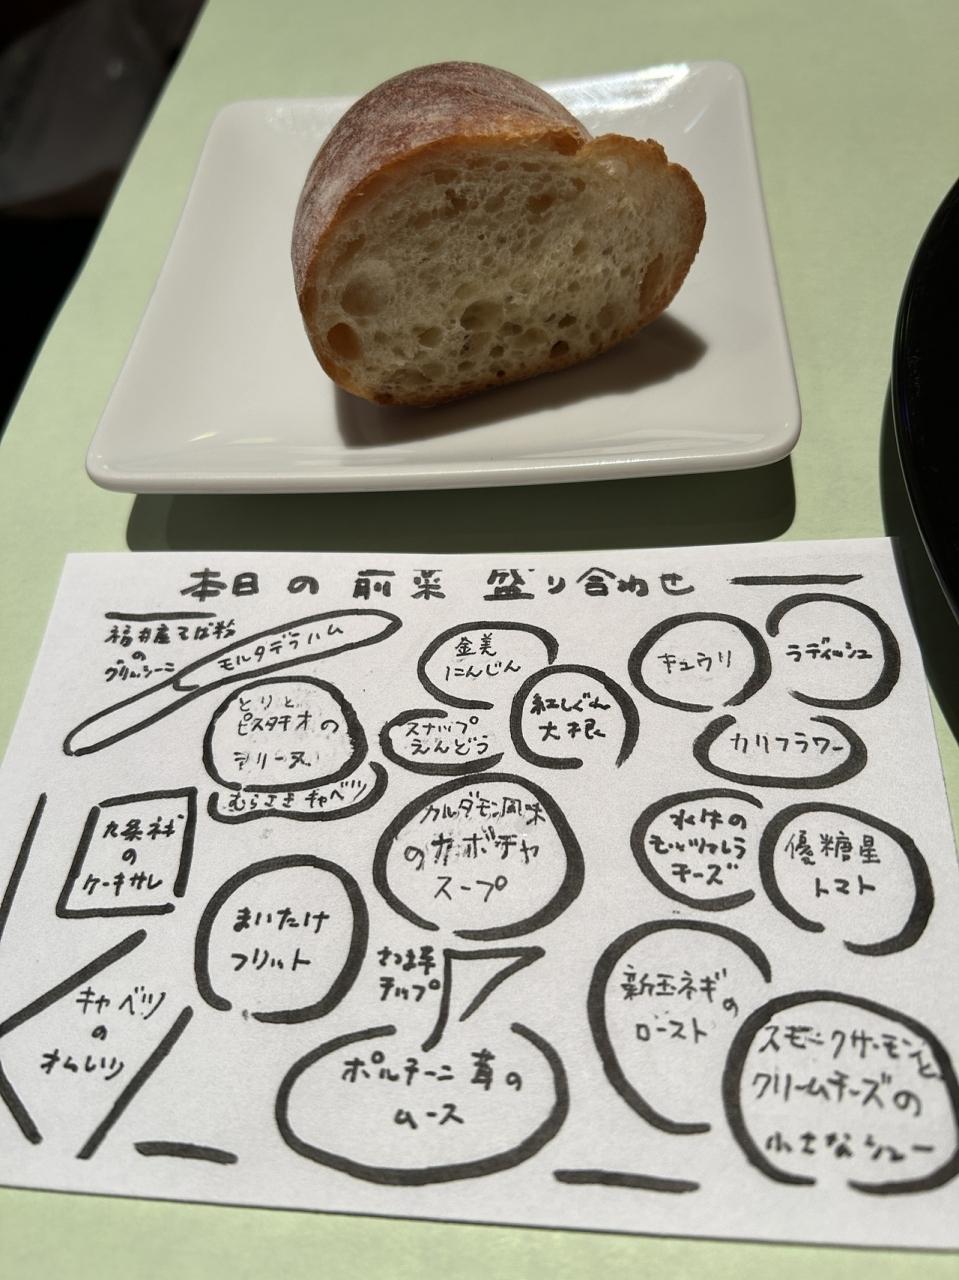 本日の前菜盛り合わせ
福井産そば粉
の
グリッシーニ
モルタデラハム
金美
にんじん
キュウリ
ラディッシュ
とりと
ピスタチオの
テリーヌ
スナップ
えんどう
紅しぐれ
大根
カリフラワー
むらさきキャベツ
九条ネギ
の
ケークサレ
カルダモン風味
のカボチャ
スープ
水牛の
モッツァレラ
チーズ
優糖星
トマト
まいたけ
フリット
さつま芋
チップ
新玉ネギの
ロースト
キャベツ
の
オムレツ
ポルチーニ茸の
ムース
スモークサーモンと
クリームチーズの
小さなシュー